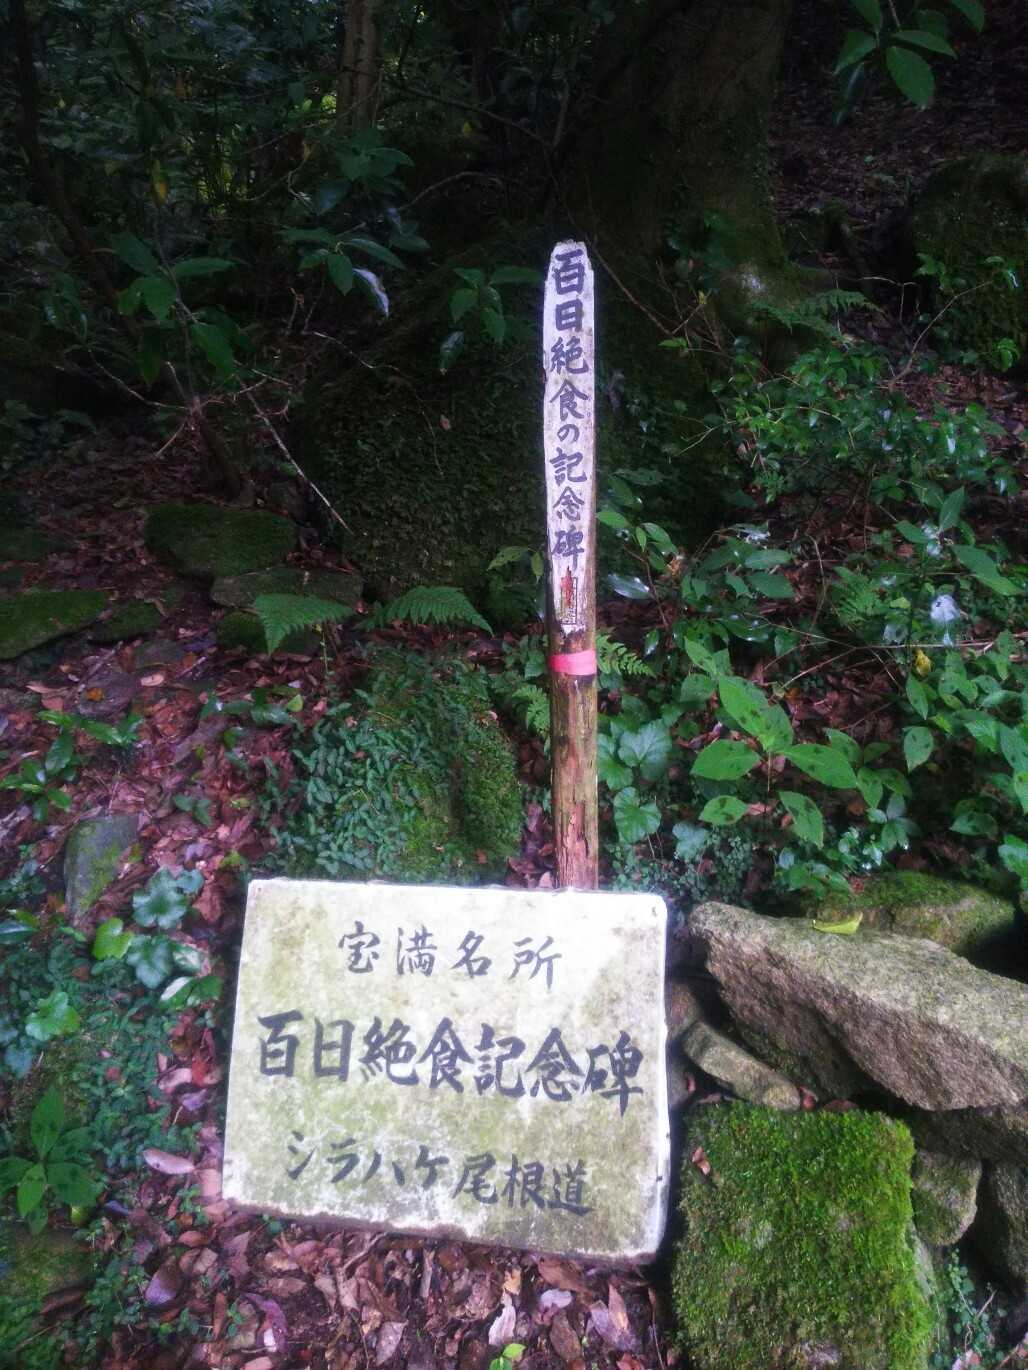 百日絶食の記念碑
宝満名所
百日絶食記念碑
シラハケ尾根道